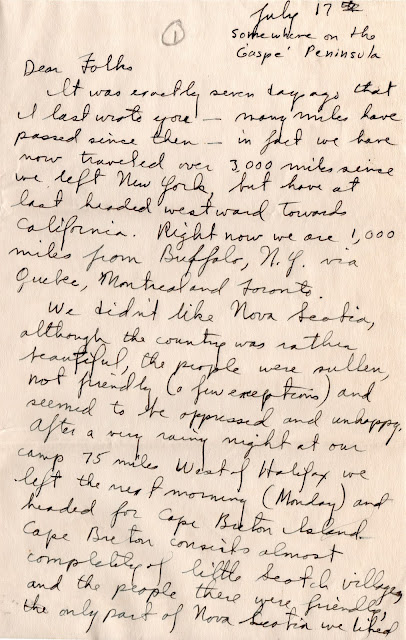 July 17th
1
somewhere on the
Gaspé Peninsula
Dear Folks
It was exactly seven days ago that
I last wrote you — many miles have
passed since then — in fact we have
now traveled over 3,000 miles since
we left New York, but have at
last headed westward towards
California. Right now we are 1,000
miles from Buffalo, N.Y. via
Quebec, Montreal and Toronto.
We didn't like Nova Scotia,
although the country was rather
beautiful, the people were sullen,
not friendly (a few exceptions) and
seemed to be oppressed and unhappy.
After a very rainy night at our
camp 75 miles West of Halifax we
left the next morning (Monday) and
headed for Cape Breton Island.
Cape Breton consists almost
completely of little Scotch villages,
and the people there were friendly,
the only part of Nova Scotia we liked